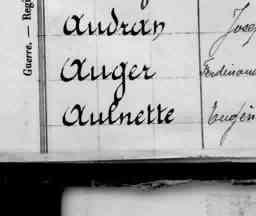 Audran Jose
Auger Ferdinand
Aulnette Eugèn
Guerre. — Regi